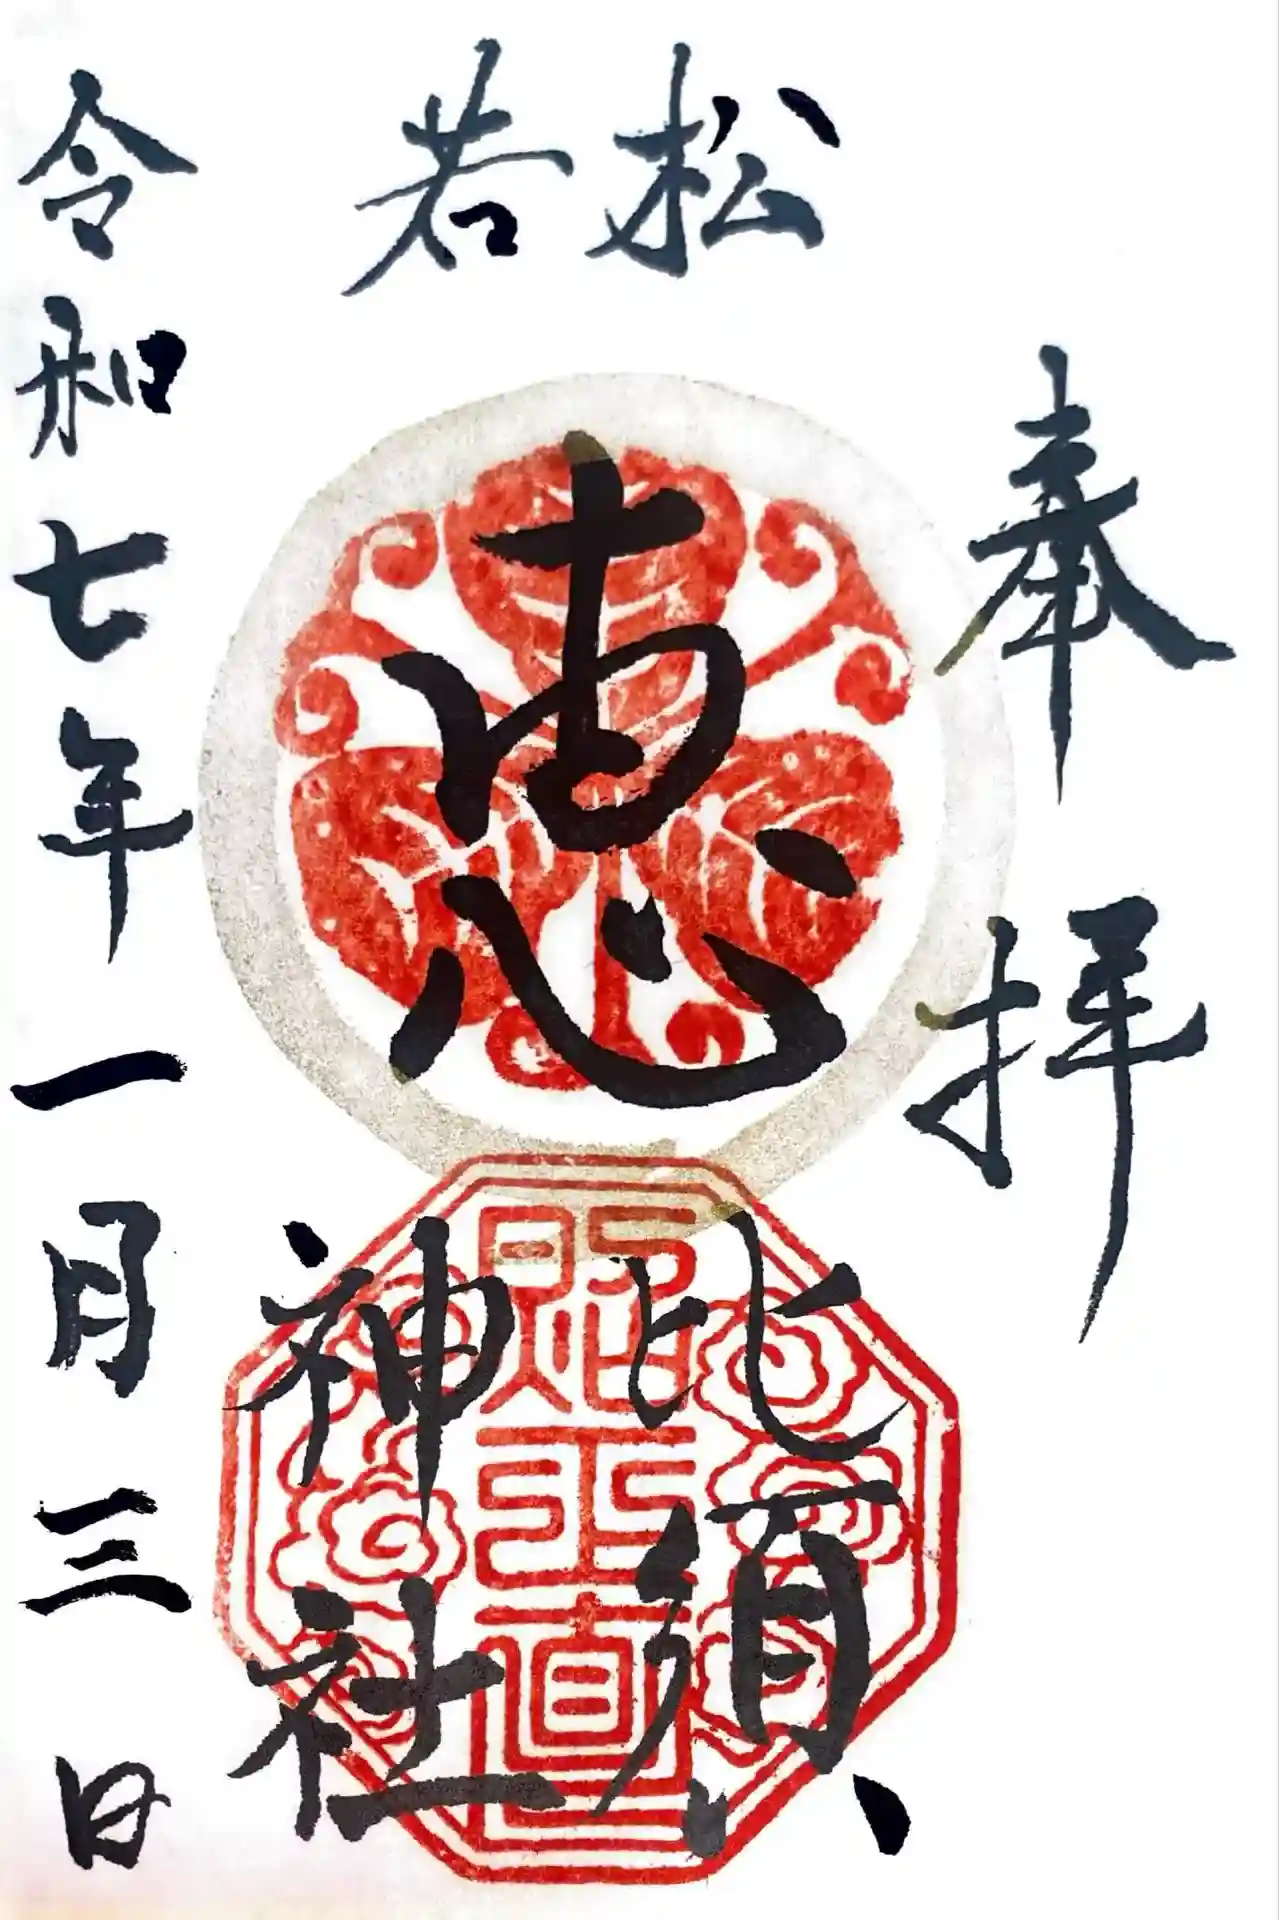 奉拝
若松
恵比須
神社
令和七年一月三日